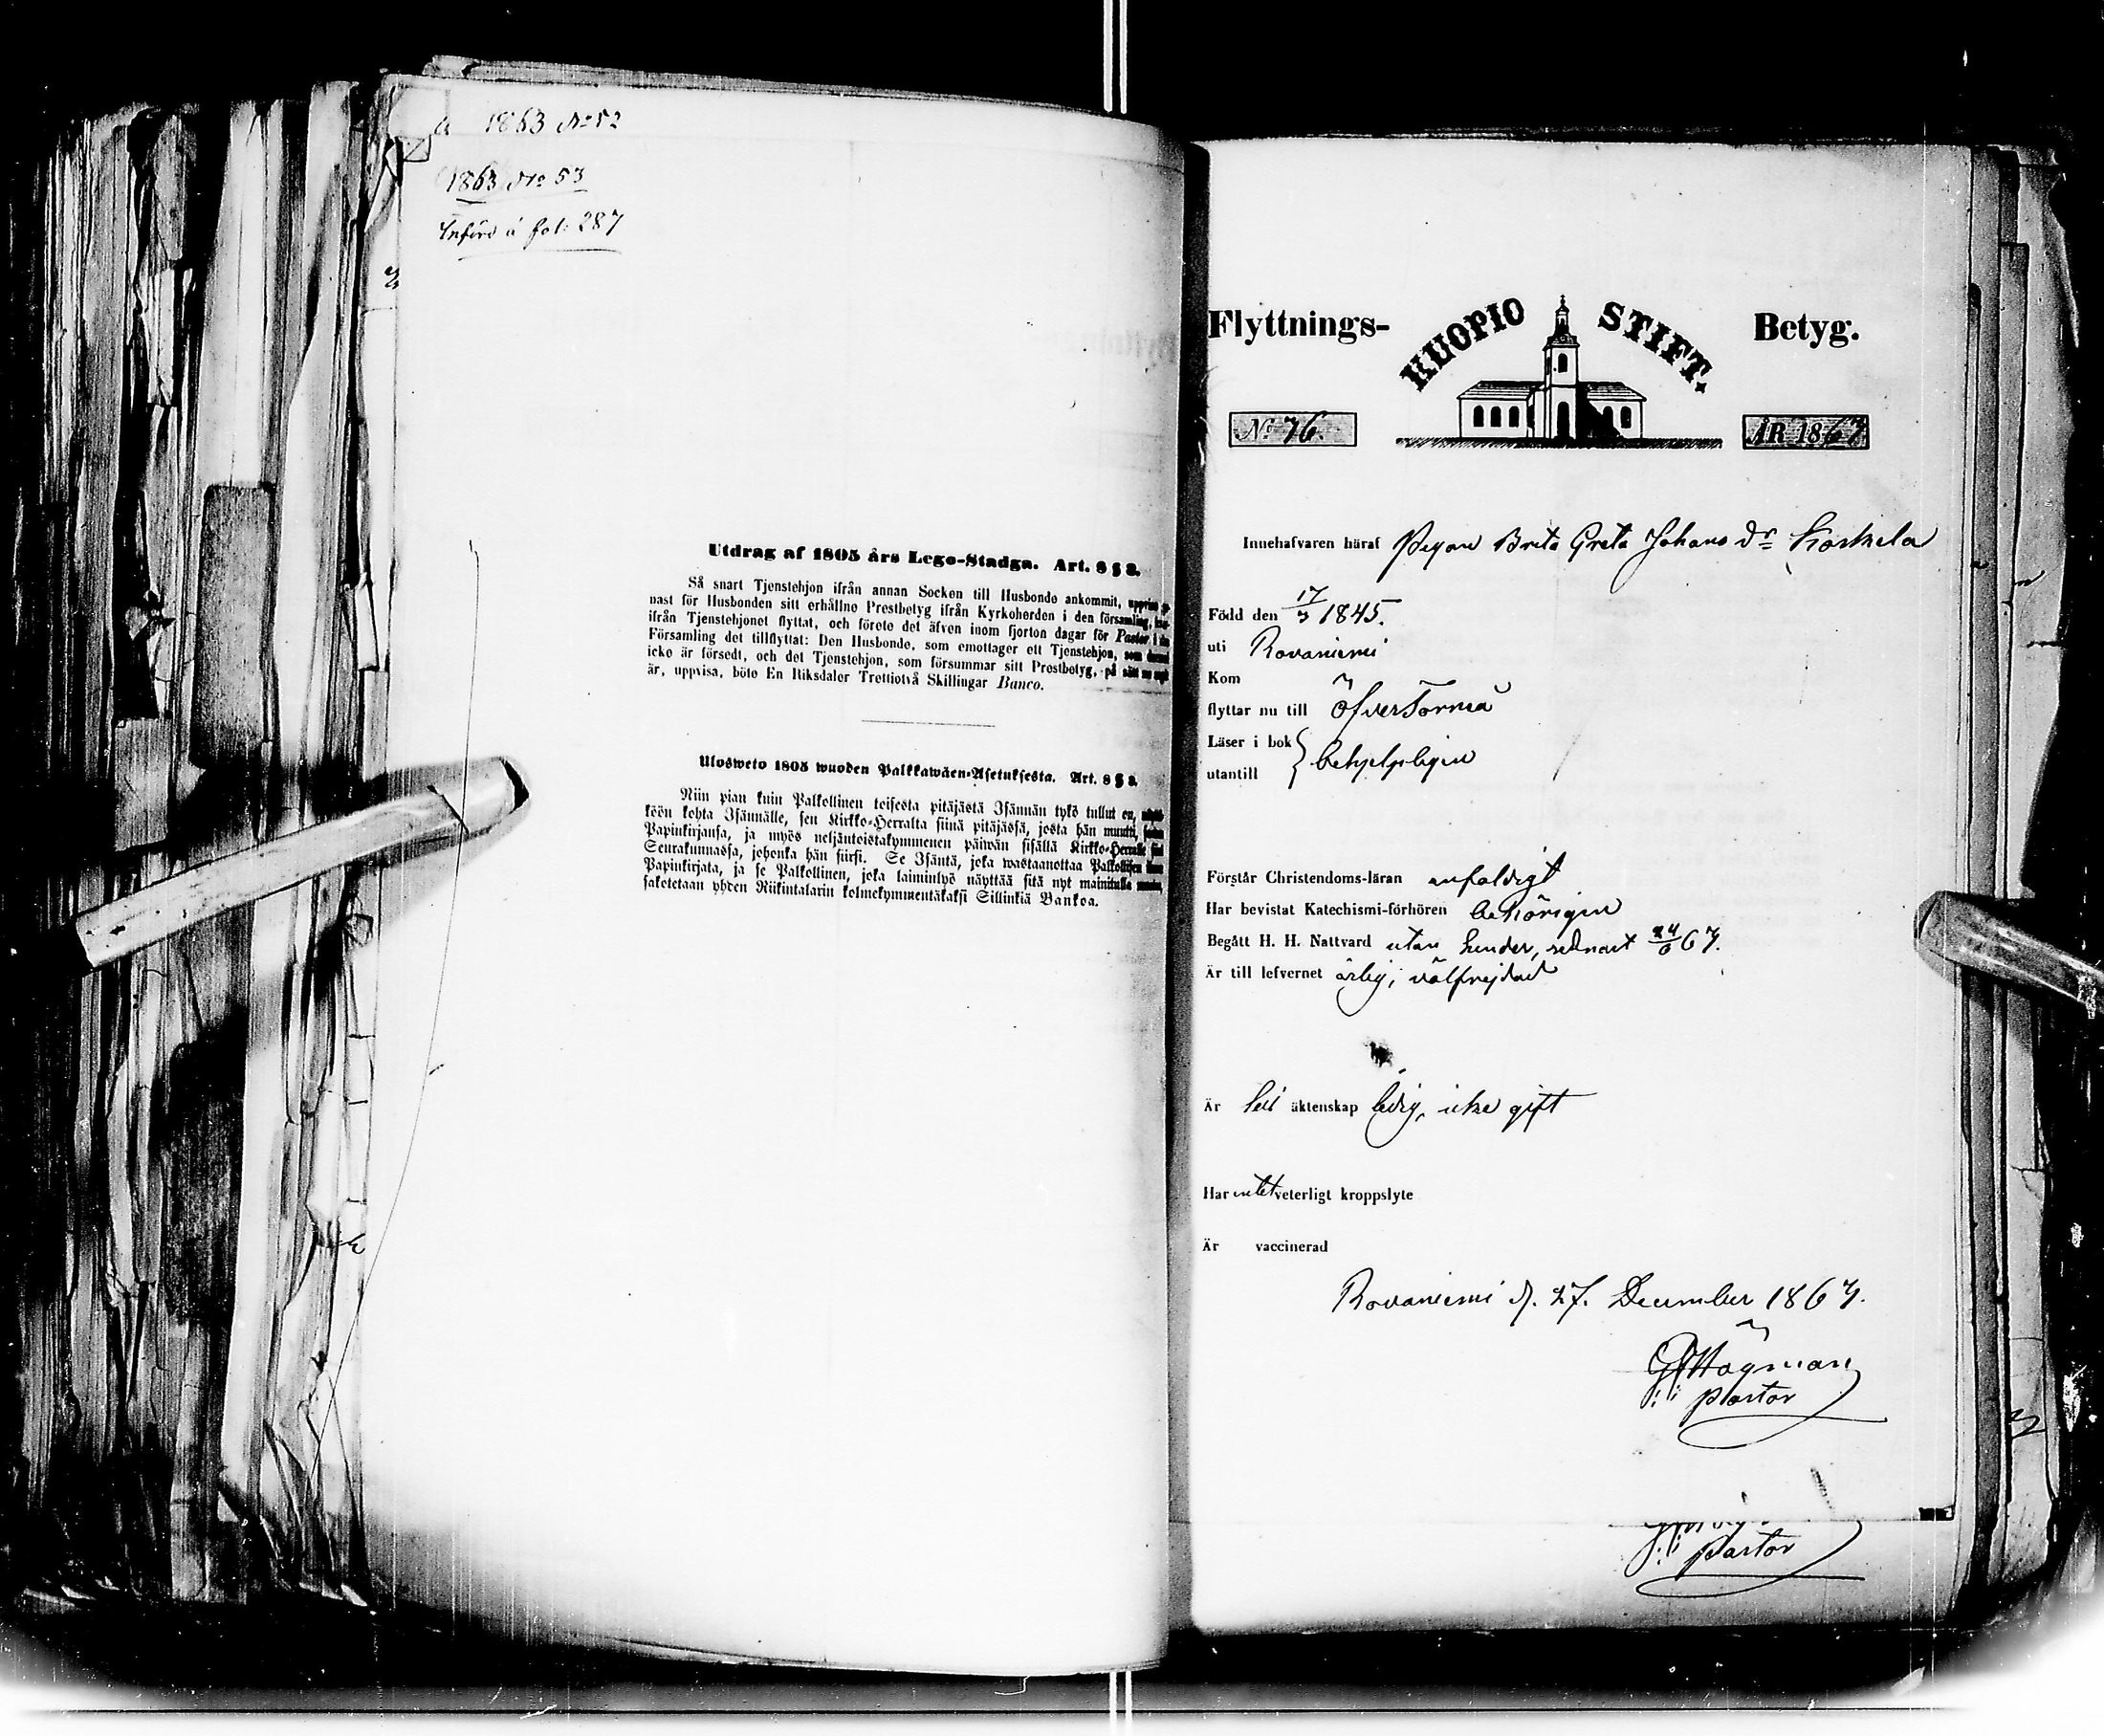 1863 No 52
1863 No 53
Införd å fol: 287
Utdrag af 1805 års Lego-Stadga. Art. 8 § 3.
Så snart Tjenstehjon ifrån annan Socken till Husbonde ankommit,
nast för Husbonden sitt erhållne Prestbetyg ifrån Kyrkoherden i den församling,
ifrån Tjenstehjonet flyttat, och förete det äfven inom fjorton dagar för Pastor i
Församling det tillflyttat: Den Husbonde, som emottager ett Tjenstehjon, som
icke är försedt, och det Tjenstehjon, som försummar sitt Prestbetyg, på sätt
är, uppvisa, böte En Riksdaler Trettiotvå Skillingar Banco.
Ulosweto 1805 wuoden Palkkawäen-Asetuksesta. Art. 8 § 3.
Niin pian kuin Palkollinen toisesta pitäjästä Isännän tykö tullut on,
köön kohta Isännälle, sen Kirkko-Herralta siinä pitäjässä, josta hän muutti,
Papinkirjansa, ja myös neljäntoistakymmenen päiwän sisällä Kirkko-Herralle
Seurakunnassa, johonka hän siirsi. Se Isäntä, joka wastaanottaa Palkollisen
Papinkirjata, ja se Palkollinen, joka laiminlyö näyttää sitä nyt mainitulla
sakotetaan yhden Riikintalarin kolmekymmentäkaksi Sillinkiä Bankoa.
Flyttnings- KUOPIO STIFT. Betyg.
No 76. ÅR 1867
Innehafvaren häraf Pigan Brita Greta Johans dr Koskela
Född den 17/3 1845.
uti Rovaniemi
Kom
flyttar nu till ÖfverTorneå
Läser i bok
utantill } behjelpligen
Förstår Christendoms-läran enfaldigt
Har bevistat Katechismi-förhören behörigen
Begått H. H. Nattvard utan hinder, sednast 24/6 67.
Är till lefvernet ärlig, välfrejdad
Är till äktenskap ledig, icke gift
Har intet veterligt kroppslyte
Är vaccinerad
Rovaniemi d. 27. December 1867.
Högman
Pastor
Pastor